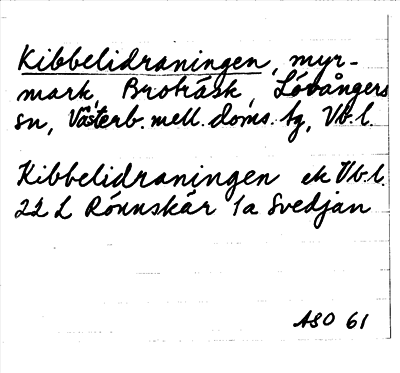 Kibbelidraningen, myr-
mark, Broträsk, Lövångers
sn, Västerb. mell. doms. tg, Vb. l.
Kibbelidraningen ek Vb. l.
22 L Rönnskär 1a Svedjan
ASO 61